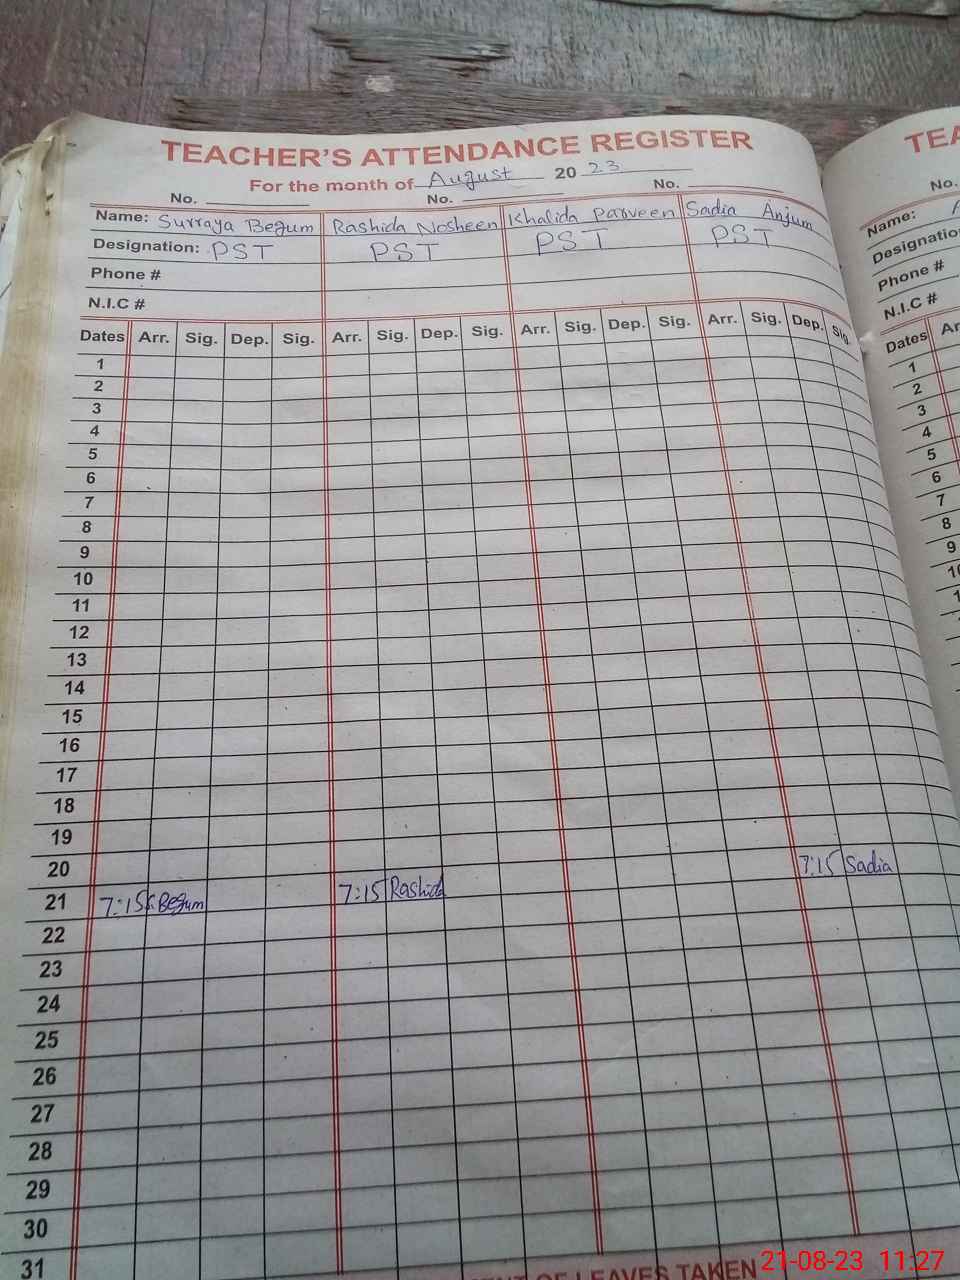 TEACHER'S ATTENDANCE REGISTER
For the month of August 20 23
No. No. No.
Name: Surraya Begum Rashida Nosheen Khalida Parveen Sadia Anjum
Designation: PST PST PST PST
Phone #
N.I.C #
Dates Arr. Sig. Dep. Sig. Arr. Sig. Dep. Sig. Arr. Sig. Dep. Sig. Arr. Sig. Dep. Sig.
1
2
3
4
5
6
7
8
9
10
11
12
13
14
15
16
17
18
19
20
21 7:15 Begum 7:15 Rashida 7:15 Sadia
22
23
24
25
26
27
28
29
30
31
OF LEAVES TAKEN
No.
Name:
Designation
Phone #
N.I.C #
Dates
1
2
3
4
5
6
7
8
9
21-08-23 11:27